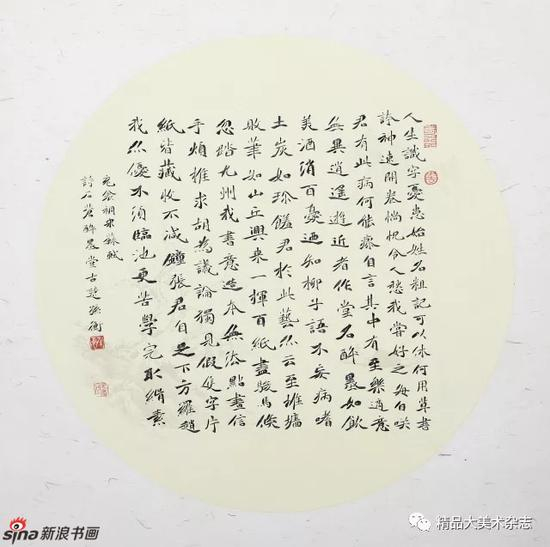 人生識字憂患始姓名粗記可以休何用草書
誇神速開卷惝怳令人愁我嘗好之每自咲
君有此病何能瘳自言其中有至樂適意
無異逍遙遊近者作堂名醉墨如飲
美酒消百憂迺知柳子語不妄病嗜
土炭如珍饈君於此藝亦云至堆墻
敗筆如山丘興來一揮百紙盡駿馬倏
忽踏九州我書意造本無法點畫信
手煩推求胡為議論獨見假隻字片
紙皆藏收不減鍾張君自足下方羅趙
我亦優不須臨池更苦學完取絹素
充衾裯 錄蘇軾
詩石蒼舒醉墨堂古
sina 新浪书画
精品大美术杂志